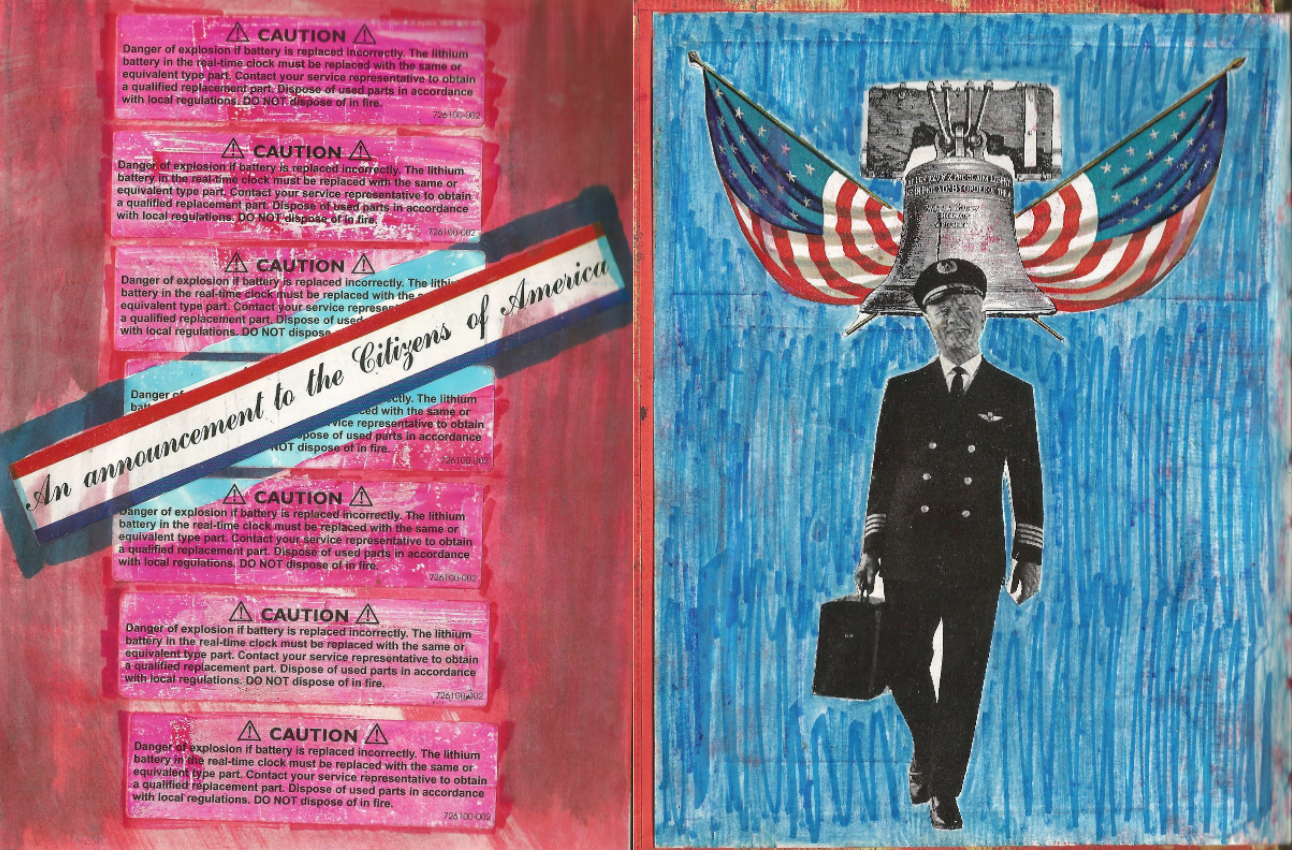 CAUTION
Danger of explosion if battery is replaced incorrectly. The lithium
battery in the real-time clock must be replaced with the same or
equivalent type part. Contact your service representative to obtain
a qualified replacement part. Dispose of used parts in accordance
with local regulations. DO NOT dispose of in fire.
726100-002
CAUTION
Danger of explosion if battery is replaced incorrectly. The lithium
battery in the real-time clock must be replaced with the same or
equivalent type part. Contact your service representative to obtain
a qualified replacement part. Dispose of used parts in accordance
with local regulations. DO NOT dispose of in fire.
726100-002
CAUTION
Danger of explosion if battery is replaced incorrectly. The
battery in the real-time clock must be replaced with the
equivalent type part. Contact your service
a qualified replacement part. Dispose of used
with local regulations. DO NOT dispose
An announcement to the Citizens of America
Danger The lithium
with the same or
representative to obtain
of used parts in accordance
NOT dispose of in fire.
726100-002
CAUTION
Danger of explosion if battery is replaced incorrectly. The lithium
battery in the real-time clock must be replaced with the same or
equivalent type part. Contact your service representative to obtain
a qualified replacement part. Dispose of used parts in accordance
with local regulations. DO NOT dispose of in fire.
726100-002
CAUTION
Danger of explosion if battery is replaced incorrectly. The lithium
battery in the real-time clock must be replaced with the same or
equivalent type part. Contact your service representative to obtain
a qualified replacement part. Dispose of used parts in accordance
with local regulations. DO NOT dispose of in fire.
726100-002
CAUTION
Danger of explosion if battery is replaced incorrectly. The lithium
battery in the real-time clock must be replaced with the same or
equivalent type part. Contact your service representative to obtain
a qualified replacement part. Dispose of used parts in accordance
with local regulations. DO NOT dispose of in fire.
726100-002